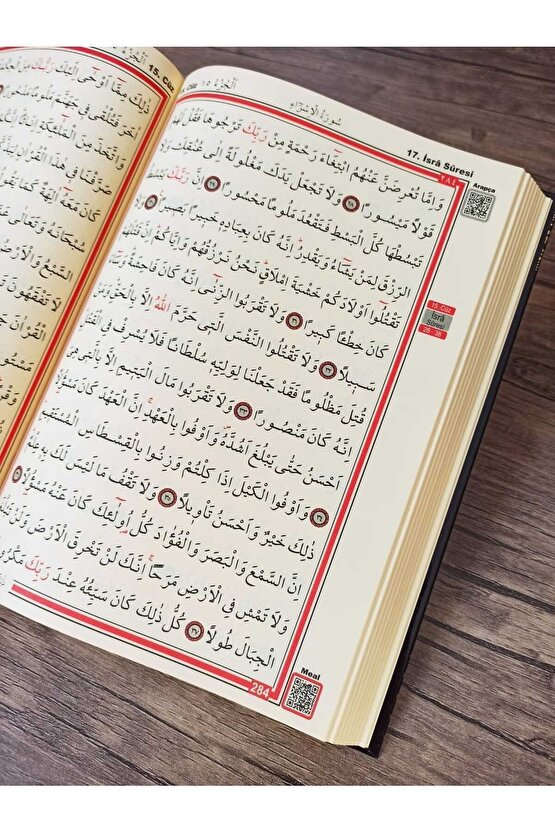 15. Cüz
ذٰلِكَ مِمَّٓا اَوْحٰٓى اِلَيْكَ رَبُّكَ مِنَ
اٰخَرَ فَتُلْقٰى فِي جَهَنَّمَ مَلُومًا
وَاتَّخَذَ مِنَ
صَرَّفْنَا فِي هٰذَا الْقُرْاٰنِ
كَانَ مَعَهُٓ اٰلِهَةٌ كَمَا
سُبْحَانَهُ وَتَعَالٰى
السَّبْعُ وَالْاَرْضُ
لَا تَفْقَهُونَ
الْقُرْاٰنَ
مَسْتُورًا
وَقْرًا
الْجُزْءُ ١٥
سُورَةُ الْاِسْرَٓاءِ
17. İsrâ Sûresi
٢٨٤
Arapça
وَاِمَّا تُعْرِضَنَّ عَنْهُمُ ابْتِغَٓاءَ رَحْمَةٍ مِنْ رَبِّكَ تَرْجُوهَا فَقُلْ لَهُمْ
قَوْلًا مَيْسُورًا ﴿٢٨﴾ وَلَا تَجْعَلْ يَدَكَ مَغْلُولَةً اِلٰى عُنُقِكَ وَلَا
تَبْسُطْهَا كُلَّ الْبَسْطِ فَتَقْعُدَ مَلُومًا مَحْسُورًا ﴿٢٩﴾ اِنَّ رَبَّكَ يَبْسُطُ
الرِّزْقَ لِمَنْ يَشَٓاءُ وَيَقْدِرُ اِنَّهُ كَانَ بِعِبَادِهِ خَبِيرًا بَصِيرًا ﴿٣٠﴾ وَلَا
تَقْتُلُٓوا اَوْلَادَكُمْ خَشْيَةَ اِمْلَاقٍ نَحْنُ نَرْزُقُهُمْ وَاِيَّاكُمْ اِنَّ قَتْلَهُمْ
كَانَ خِطْـًٔا كَبِيرًا ﴿٣١﴾ وَلَا تَقْرَبُوا الزِّنٰٓى اِنَّهُ كَانَ فَاحِشَةً وَسَٓاءَ
سَبِيلًا ﴿٣٢﴾ وَلَا تَقْتُلُوا النَّفْسَ الَّتِي حَرَّمَ اللّٰهُ اِلَّا بِالْحَقِّ وَمَنْ
قُتِلَ مَظْلُومًا فَقَدْ جَعَلْنَا لِوَلِيِّهِ سُلْطَانًا فَلَا يُسْرِفْ فِي الْقَتْلِ
اِنَّهُ كَانَ مَنْصُورًا ﴿٣٣﴾ وَلَا تَقْرَبُوا مَالَ الْيَتِيمِ اِلَّا بِالَّتِي هِيَ
اَحْسَنُ حَتّٰى يَبْلُغَ اَشُدَّهُ وَاَوْفُوا بِالْعَهْدِ اِنَّ الْعَهْدَ كَانَ مَسْؤُلًا
﴿٣٤﴾ وَاَوْفُوا الْكَيْلَ اِذَا كِلْتُمْ وَزِنُوا بِالْقِسْطَاسِ الْمُسْتَقِيمِ
ذٰلِكَ خَيْرٌ وَاَحْسَنُ تَأْوِيلًا ﴿٣٥﴾ وَلَا تَقْفُ مَا لَيْسَ لَكَ بِهِ عِلْمٌ
اِنَّ السَّمْعَ وَالْبَصَرَ وَالْفُؤٰادَ كُلُّ اُو۬لٰٓئِكَ كَانَ عَنْهُ مَسْؤُلًا ﴿٣٦﴾
وَلَا تَمْشِ فِي الْاَرْضِ مَرَحًا اِنَّكَ لَنْ تَخْرِقَ الْاَرْضَ وَلَنْ تَبْلُغَ
الْجِبَالَ طُولًا ﴿٣٧﴾ كُلُّ ذٰلِكَ كَانَ سَيِّئُهُ عِنْدَ رَبِّكَ مَكْرُوهًا
15. Cüz
İsrâ
Sûresi
28 - 38
284
Meal